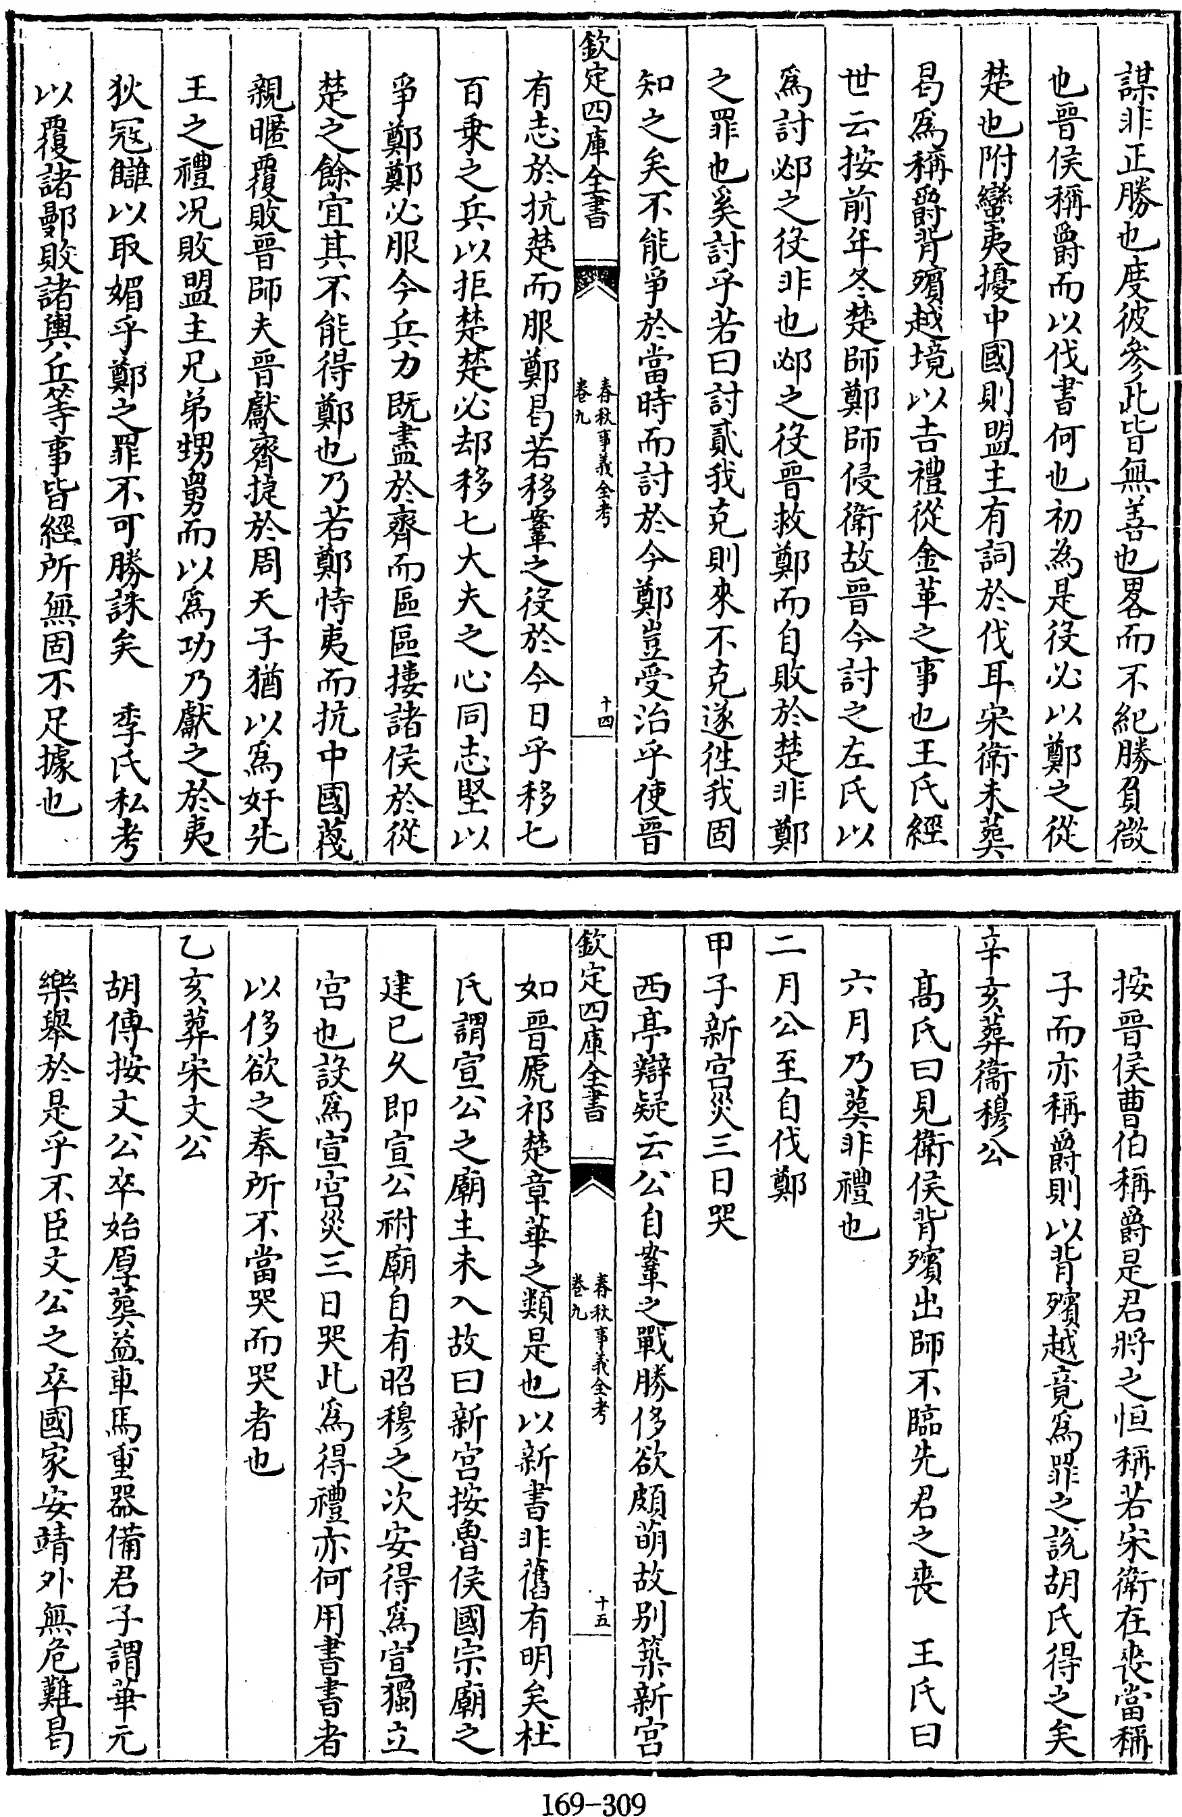 謀非正勝也度彼參此皆無善也畧而不紀勝負微
也晉侯稱爵而以伐書何也初為是役必以鄭之從
楚也附蠻夷擾中國則盟主有詞於伐耳宋衛未葬
曷爲稱爵背殯越境以吉禮從金革之事也王氏經
世云按前年冬楚師鄭師侵衛故晉今討之左氏以
爲討邲之役非也邲之役晉救鄭而自敗於楚非鄭
之罪也奚討乎若曰討貳我克則來不克遂徃我固
知之矣不能爭於當時而討於今鄭豈受治乎使晉
欽定四庫全書
春秋事義全考
卷九
十四
有志於抗楚而服鄭曷若移鞌之役於今日乎移七
百乗之兵以拒楚楚必却移七大夫之心同志堅以
爭鄭鄭必服今兵力既盡於齊而區區摟諸侯於從
楚之餘宜其不能得鄭也乃若鄭恃夷而抗中國蔑
親暱覆敗晉師夫晉獻齊捷於周天子猶以爲奸先
王之禮况敗盟主兄弟甥舅而以爲功乃獻之於夷
狄冦讎以取媚乎鄭之罪不可勝誅矣　季氏私考
以覆諸鄤敗諸輿丘等事皆經所無固不足據也
按晉侯曹伯稱爵是君將之恒稱若宋衛在喪當稱
子而亦稱爵則以背殯越竟爲罪之說胡氏得之矣
辛亥葬衞穆公
高氏曰見衛侯背殯出師不臨先君之喪　王氏曰
六月乃葬非禮也
二月公至自伐鄭
甲子新宮災三日哭
西亭辯疑云公自鞌之戰勝侈欲頗萌故别築新宮
欽定四庫全書
春秋事義全考
卷九
十五
如晉虒祁楚章華之類是也以新書非舊有明矣杜
氏謂宣公之廟主未入故曰新宮按魯侯國宗廟之
建已久即宣公祔廟自有昭穆之次安得爲宣獨立
宮也設爲宣宮災三日哭此爲得禮亦何用書書者
以侈欲之奉所不當哭而哭者也
乙亥葬宋文公
胡傳按文公卒始厚葬益車馬重器備君子謂華元
樂舉於是乎不臣文公之卒國家安靖外無危難曷
169-309